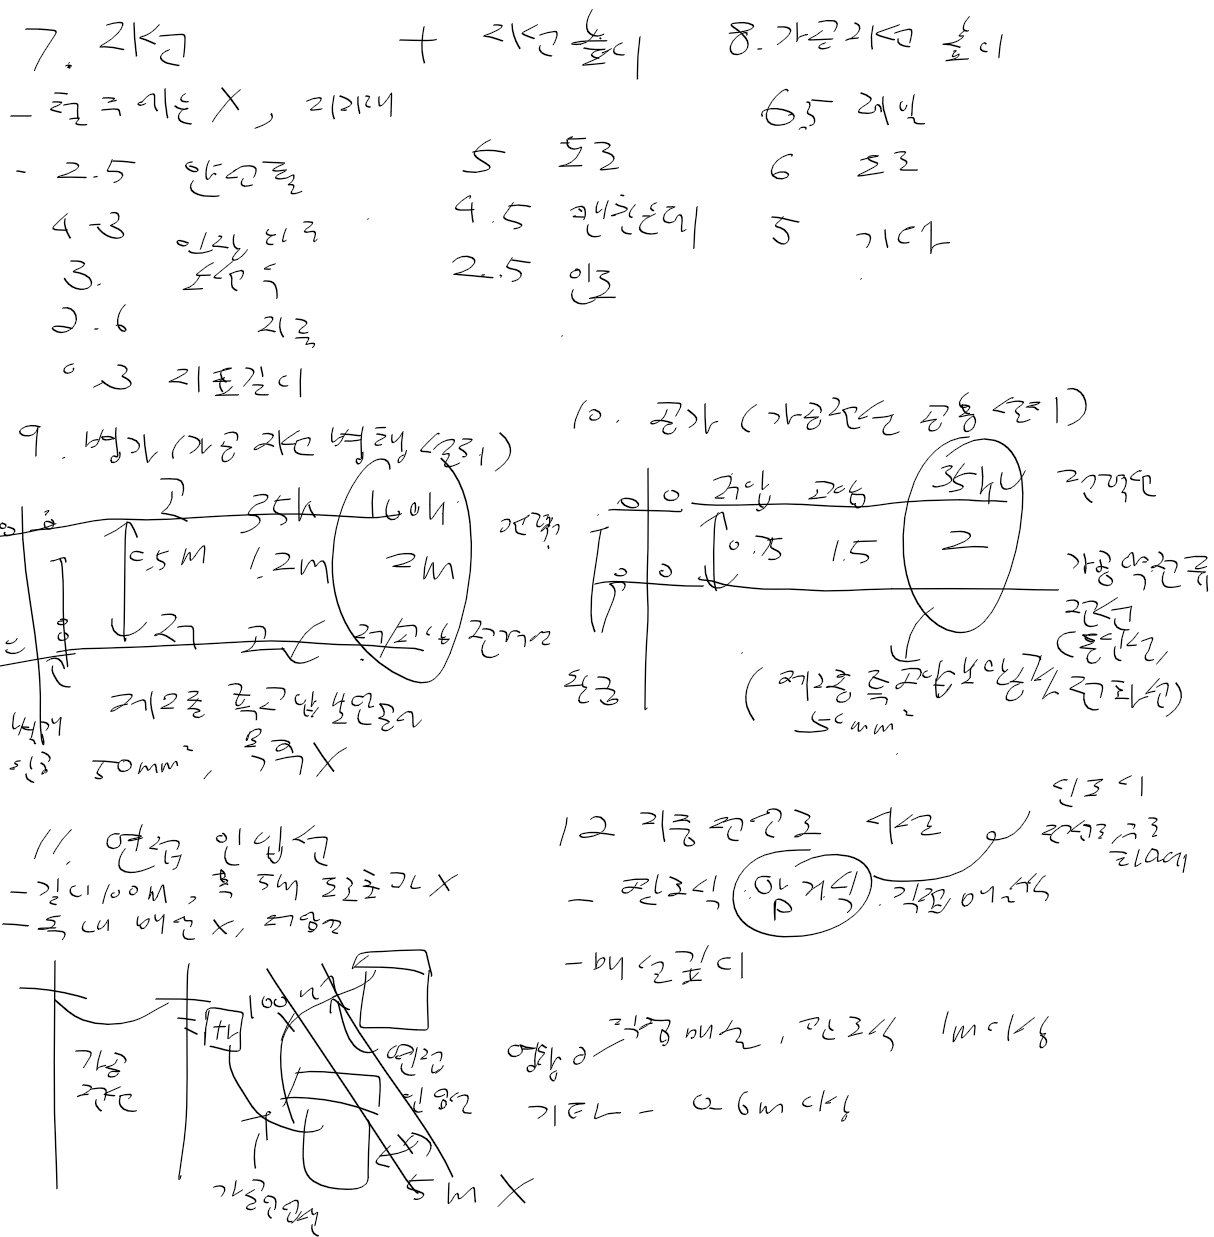 7. 지선
- 철주에는 X, 지지대
- 2.5 안전률
4-3 인장하중
3. 소선수
2.6 지름
0.3 지표길이
+ 지선 높이
5 도로
4.5 괜찮은데
2.5 인도
8. 가공지선 높이
6.5 레일
6 도로
5 기타
9. 병가 (가공전선 병행설치)
고 35k 100k
0.5m 1.2m 2m
저 고 저/고압 전력선
제2종 특고압 보안공사
50mm², 목주 X
완금
10. 공가 (가공전선 공용설치)
저압 고압 35kV 전력선
0.75 1.5 2
가공약전류
전선
(통신선,
전파선)
완금
(제2종 특고압보안공사
50mm²
11. 연접 인입선
- 길이 100m, 폭 5m 도로초과 X
- 옥내 배선 X, 저압만
가공
전선
tr
100m
연접
인입선
가공인입선
5m X
12 지중전선로 시설
- 관로식 암거식 직접매설식
- 매설깊이
직접매설, 관로식 1m이상
기타 - 0.6m 이상